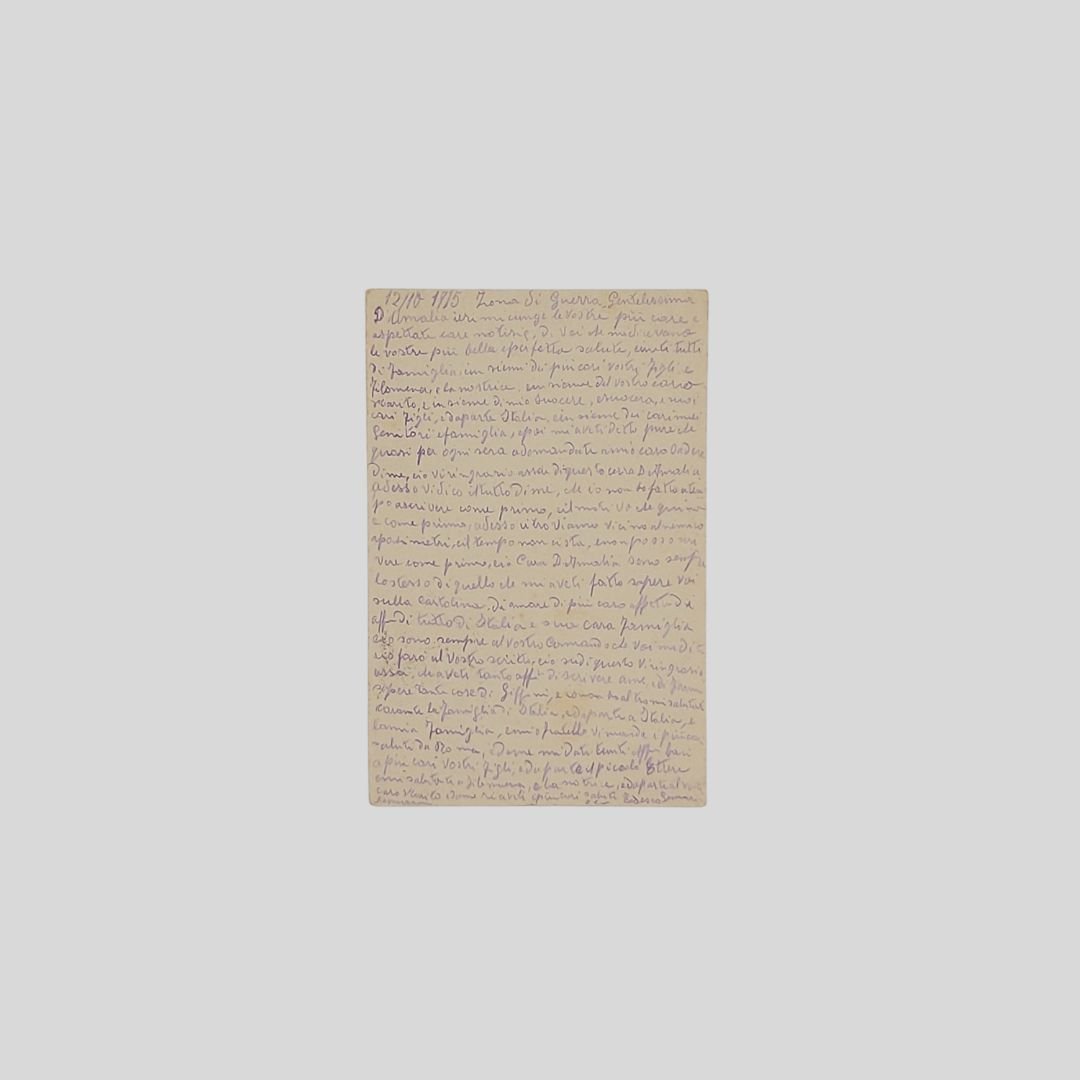 12/10 1915 Zona di Guerra Gentelessima
D. Amalia ieri mi cunge le vostre più care e
aspettate care notizie, di voi che mi dicevano
le vostre più bella e perfetta salute, e tutti
di Famiglia, in siemi dei più cari vostri Figli, e
Filomena, e la nostrice, in sieme del vostro caro
marito, e in sieme di mio Suocere, e suocera, e suoi
cari Figli, e da parte Italia, e in sieme dei cari miei
Genitori e famiglia, e poi mi aveti detto pure che
quasi per ogni sera adomandate a mio caro
Di me, e io vi ringrazio assai di questo cara D. Amalia
adesso vi dico il tutto di me, che io non ho fatto a tem
po a scrivere come primo, e il motivo che
e come primo, adesso ci troviamo vicino al nemico
metri, e il tempo non ci sta, e non posso scri
vere come primo, e io Cara D. Amalia sono sempre
lo stesso di quello che mi aveti fatto sapere voi
sulla cartolina, di amare di più caro affetto di
aff. di tutto di Italia e sua cara Famiglia
e io sono sempre al vostro Comando che voi mi dite
e io farò al vostro scritto, e io su di questo vi ringrazio
assai, che aveti tanto aff. di scrivere a me, e di farmi
sapere tante cose di Giffoni, e saluta
la Famiglia di Italia, e da parte a Italia, e
la mia Famiglia, e mio fratello vi manda i più cari
saluti da Roma, e da me mi dati tanti baci
a più cari vostri Figli, e da parte il piccolo Ettere
e mi salutati a Filomena, e la nostrice, e da parte al vostro
caro Marito e da me riceviti i più cari saluti Tedesco